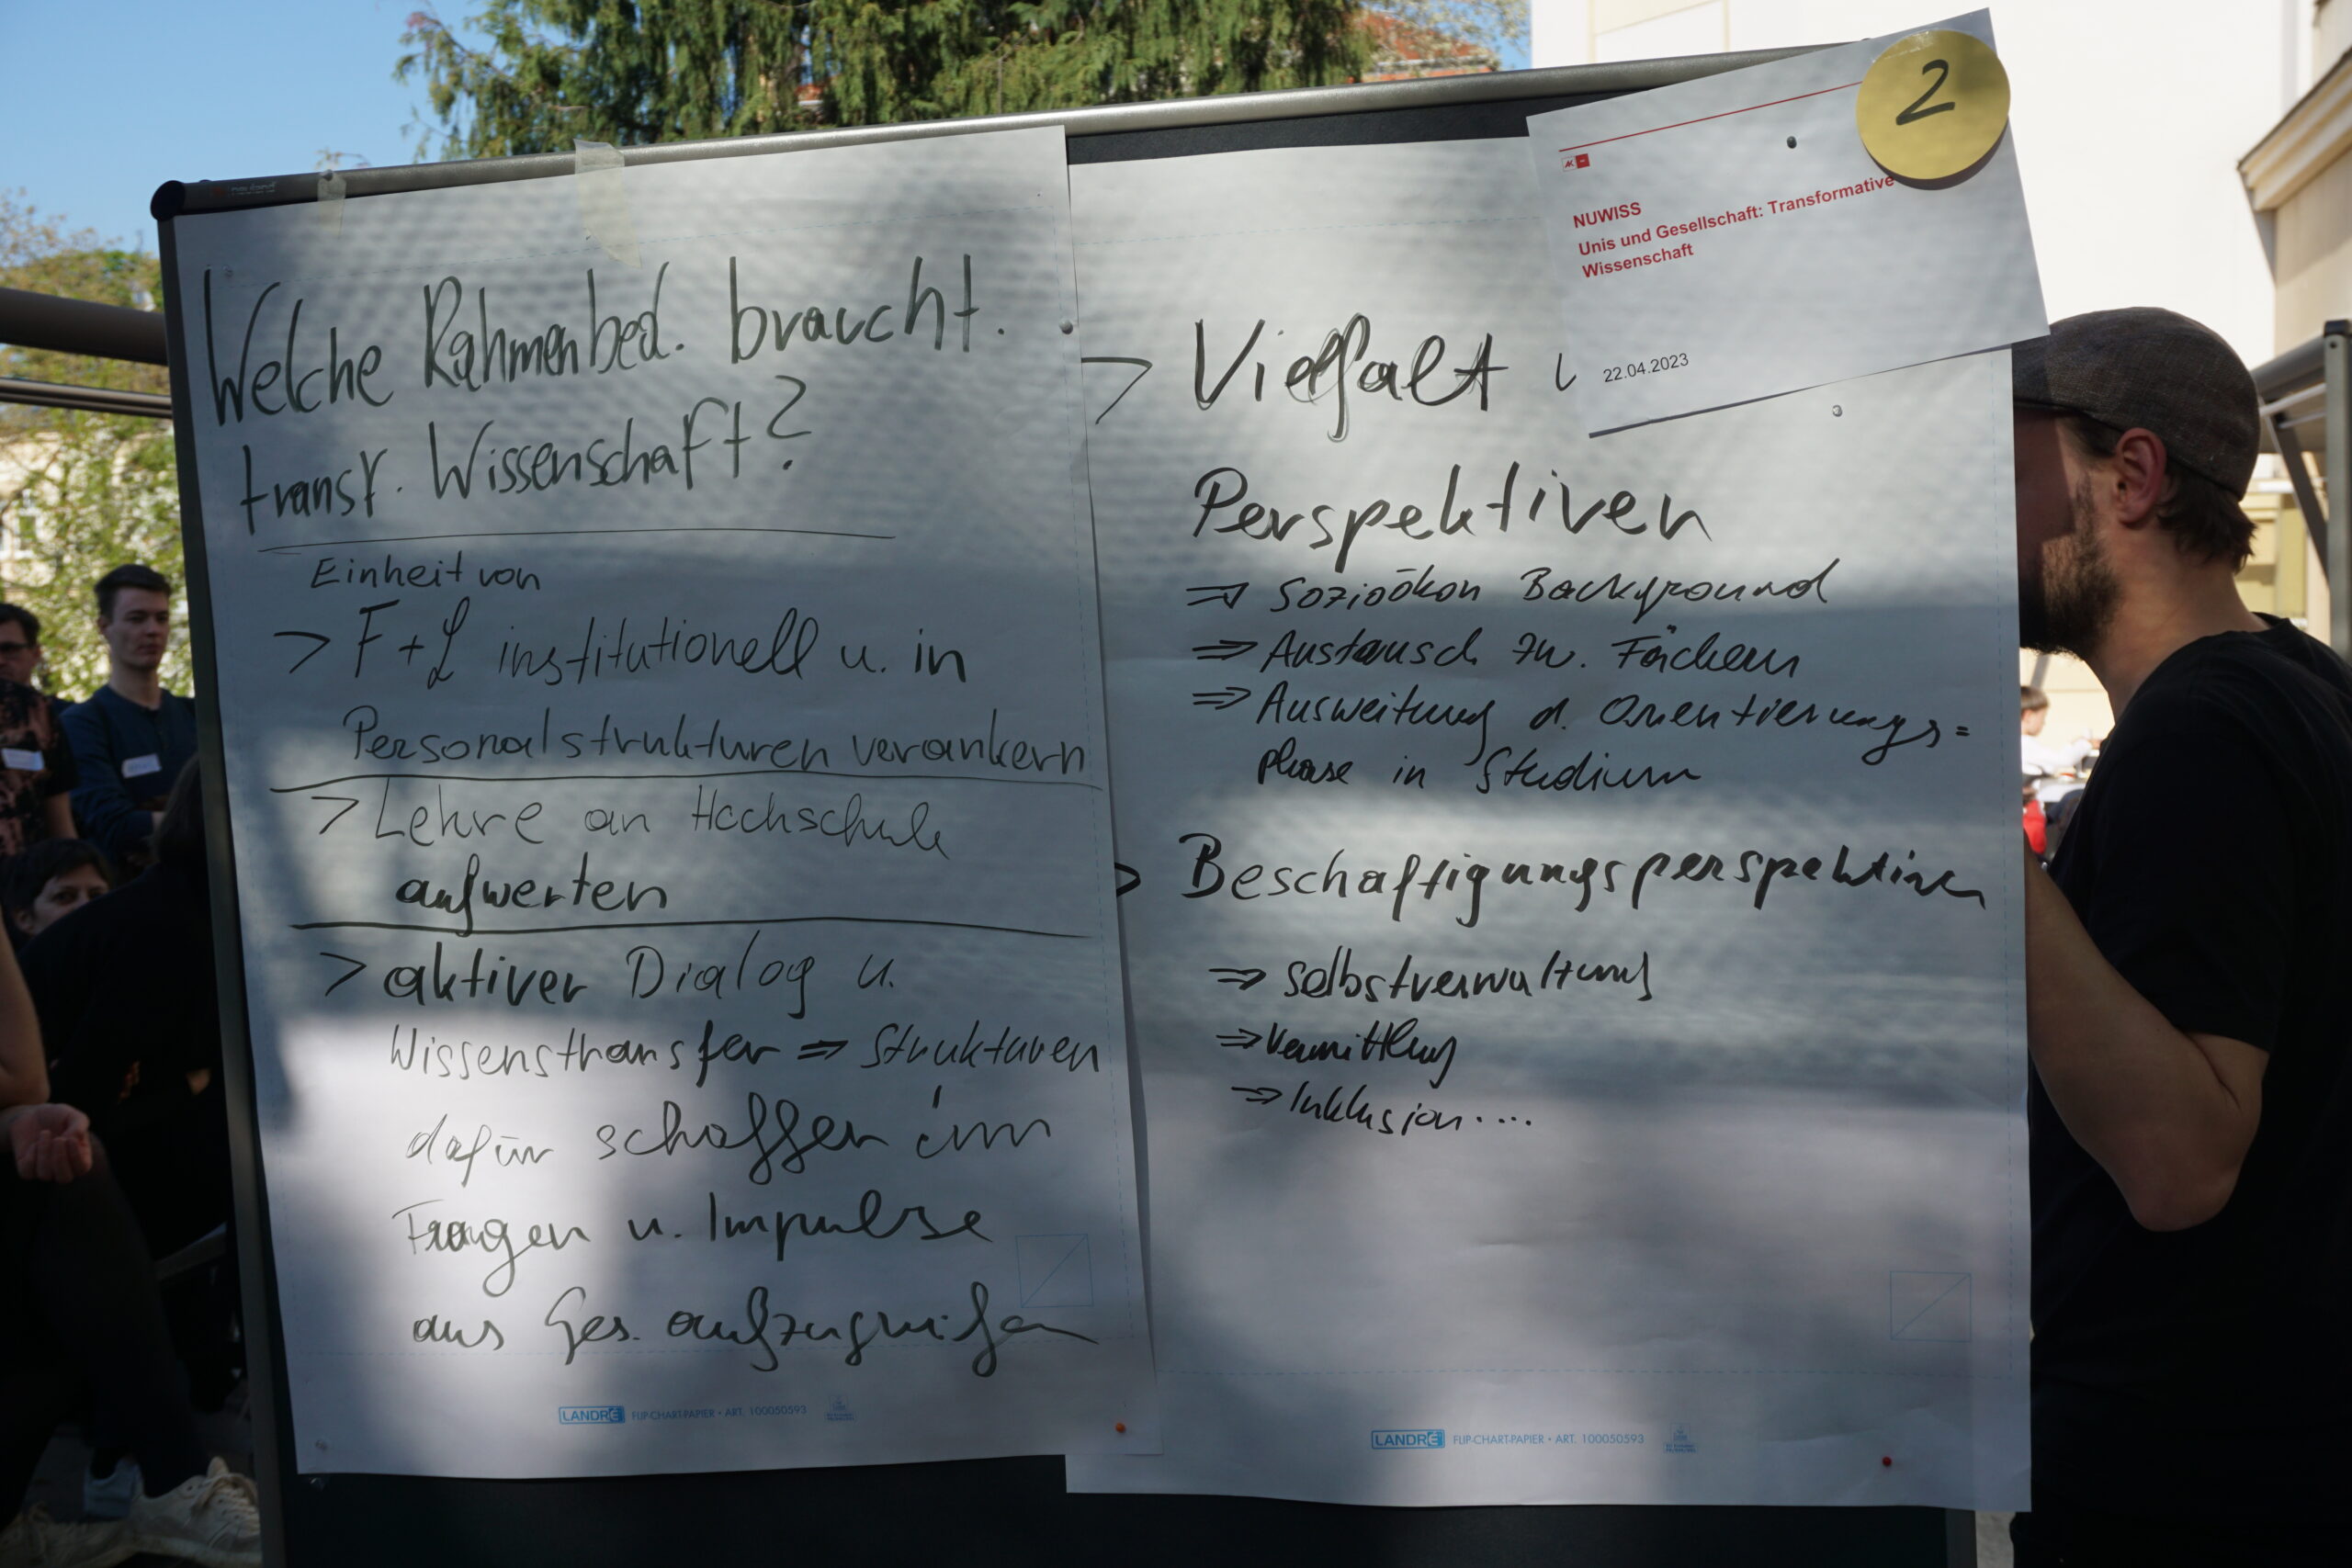 Welche Rahmenbed. braucht.
transf. Wissenschaft?
Einheit von
> F + L institutionell u. in
Personalstrukturen verankern
> Lehre an Hochschule
aufwerten
> aktiver Dialog u.
Wissenstransfer ⇒ Strukturen
dafür schaffen um
Fragen u. Impulse
aus Ges. aufzugreifen
LANDRÉ FLIP-CHART-PAPIER • ART. 100050593
2
NUWISS
Unis und Gesellschaft: Transformative
Wissenschaft
22.04.2023
> Vielfalt
Perspektiven
⇒ Sozioökon Background
⇒ Austausch zw. Fächern
⇒ Ausweitung d. Orientierungs=
phase in Studium
> Beschäftigungsperspektiven
⇒ Selbstverwaltung
⇒ Vermittlung
⇒ Inklusion....
LANDRÉ FLIP-CHART-PAPIER • ART. 100050593